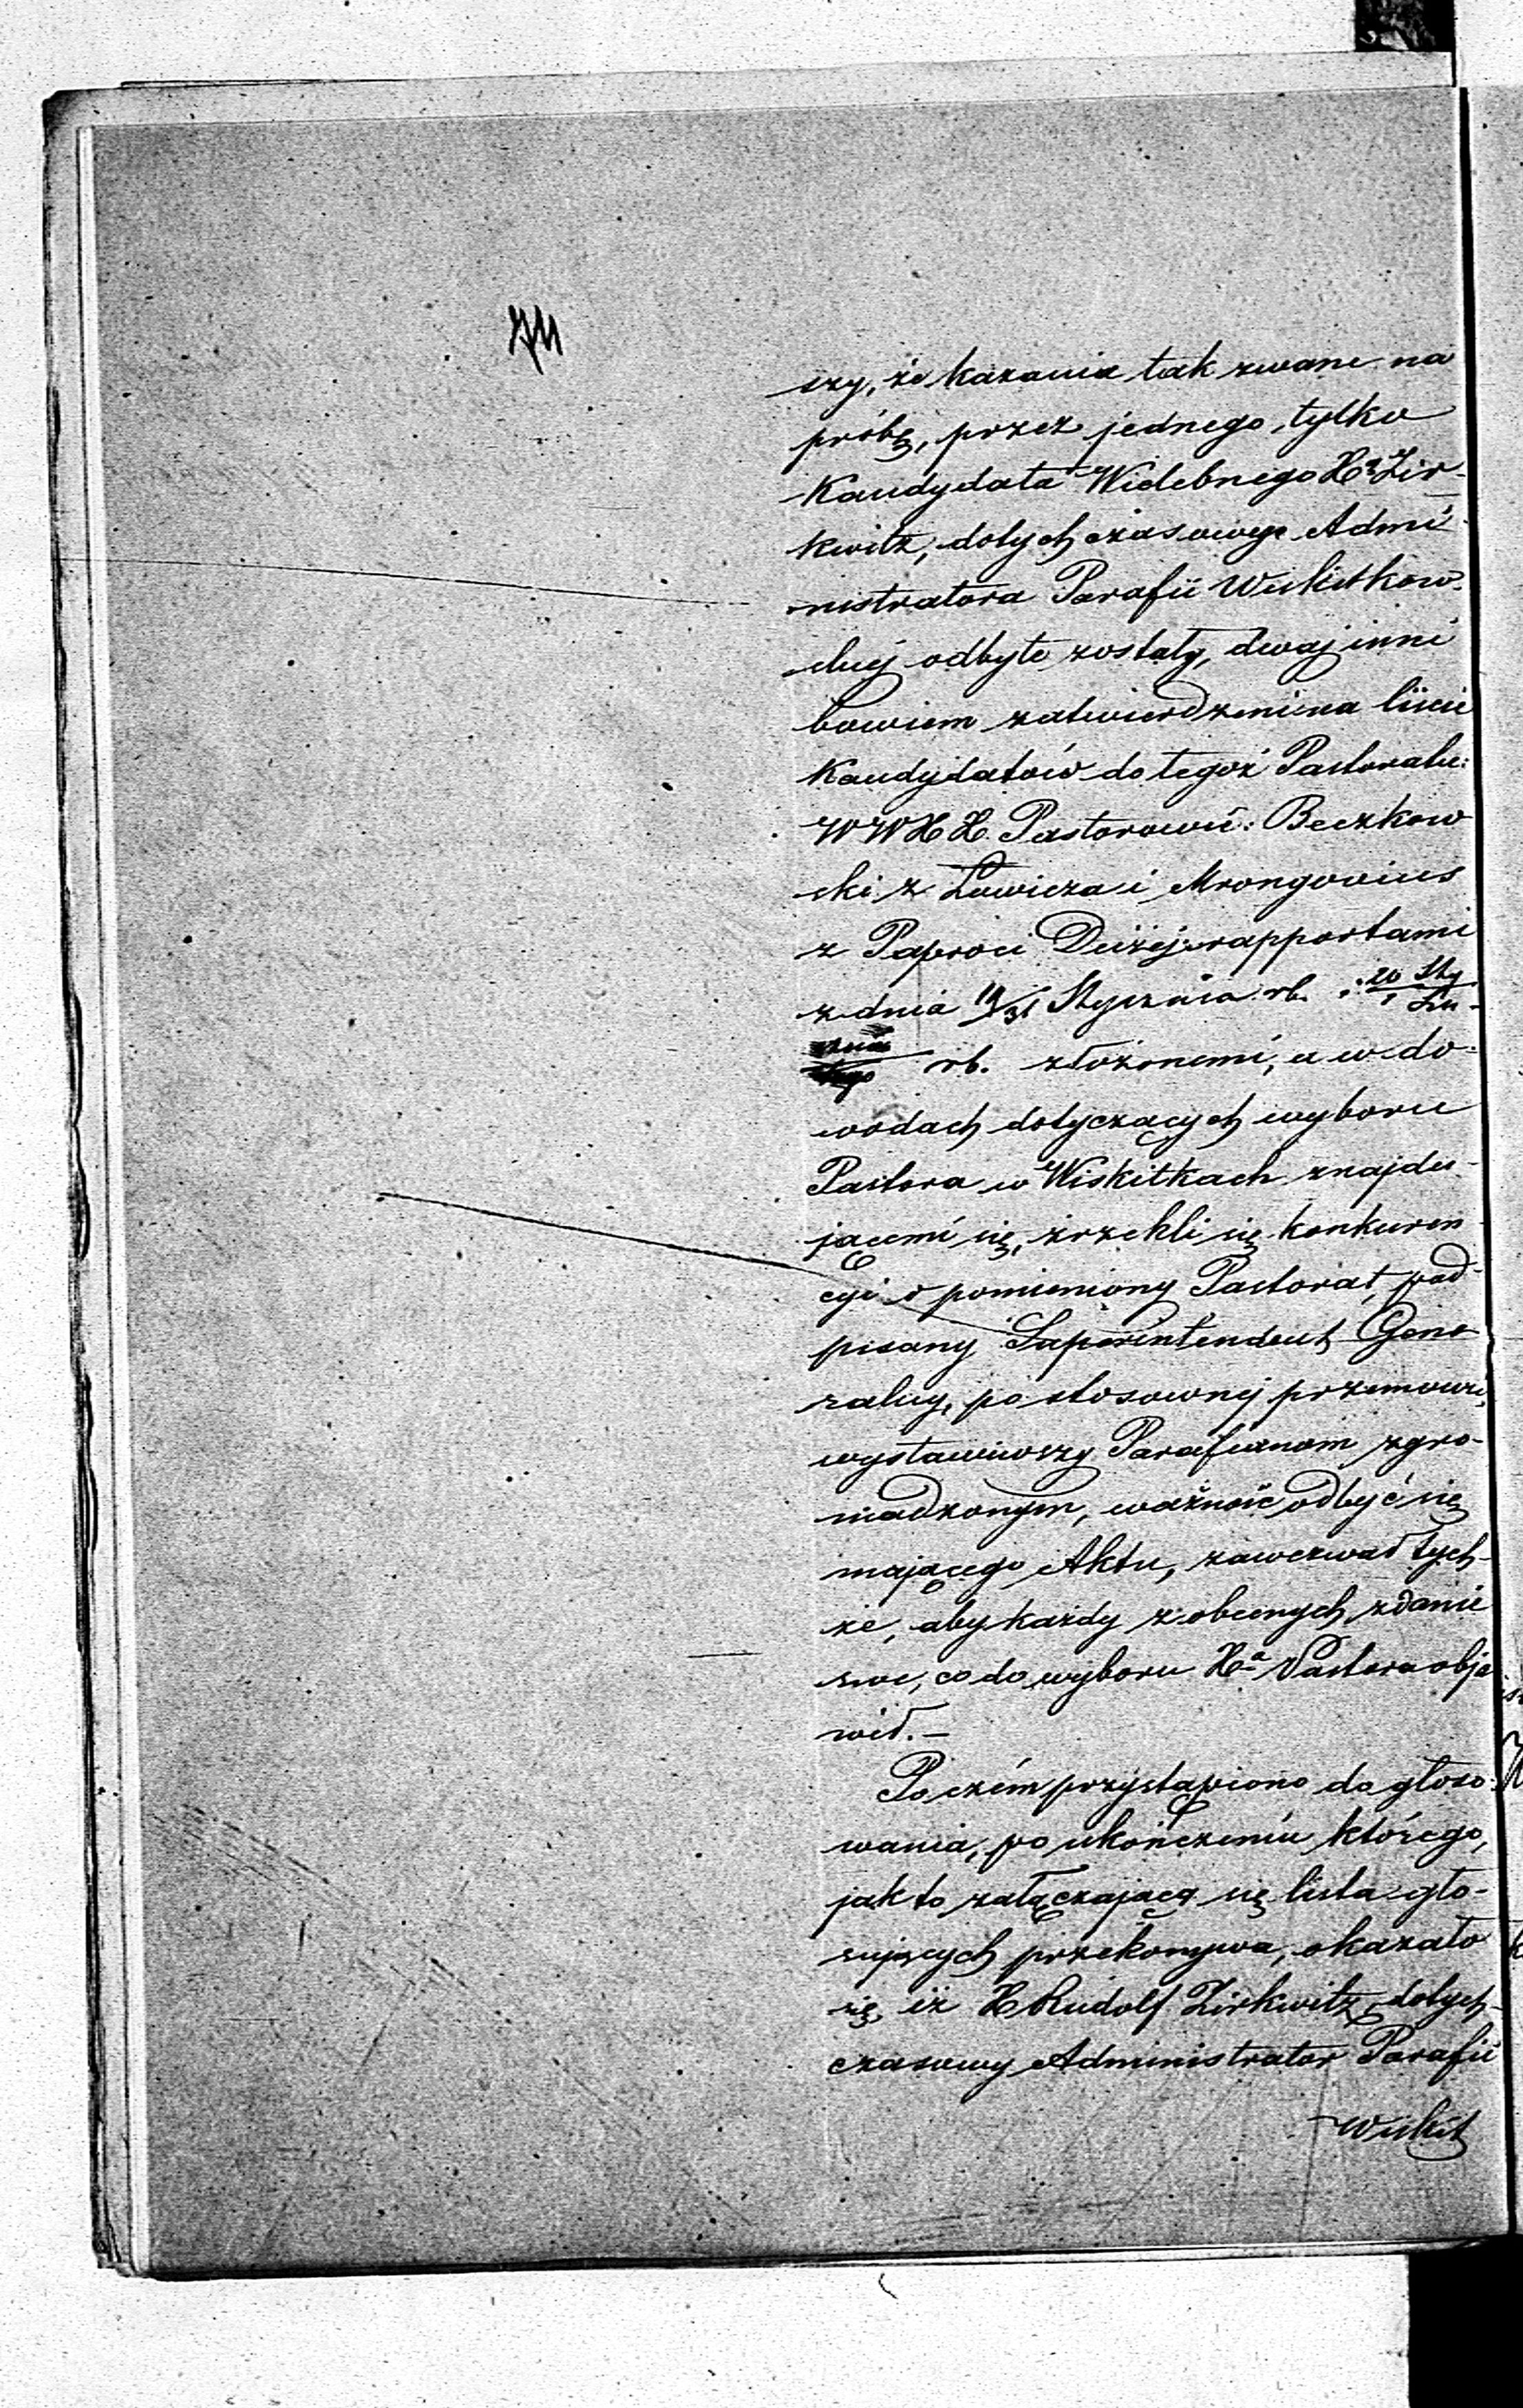 szy, że kazania tak zwane na
próbę, przez jednego tylko
Kandydata Wielebnego Xa Zir-
kwitz, dotychczasowego Admi-
nistratora Parafii Wiskitkow-
skiej odbyte zostały, dwaj inni
bowiem zatwierdzeni na liście
Kandydatów do tegoż Pastoratu:
WWXX. Pastorowie: Beczkow
ski z Łowicza i Mrongovius
z Paproci Dużej rapportami
z dnia 19/31 Stycznia rb. i 20 Sty/1 Lu-
rb. złożonemi, a w do-
wodach dotyczących wyboru
Pastora w Wiskitkach znajdu-
jącemi się, zrzekli się konkuren
cyi o pomieniony Pastorat, pod
pisany Superintendent Gene
ralny, po stosownej przemowie,
wystawiwszy Parafianom zgro-
madzonym, ważność odbyć się
mającego Aktu, zawezwał tych-
że, aby każdy z obecnych zdanie
swe, co do wyboru Xa Pastora obja
wił. –
Poczém przystąpiono do głoso-
wania, po ukończeniu którego,
jak to załączająca się lista gło-
sujących przekonywa, okazało
się, iż X Rudolf Zirkwitz, dotych-
czasowy Administrator Parafii
Wiskit